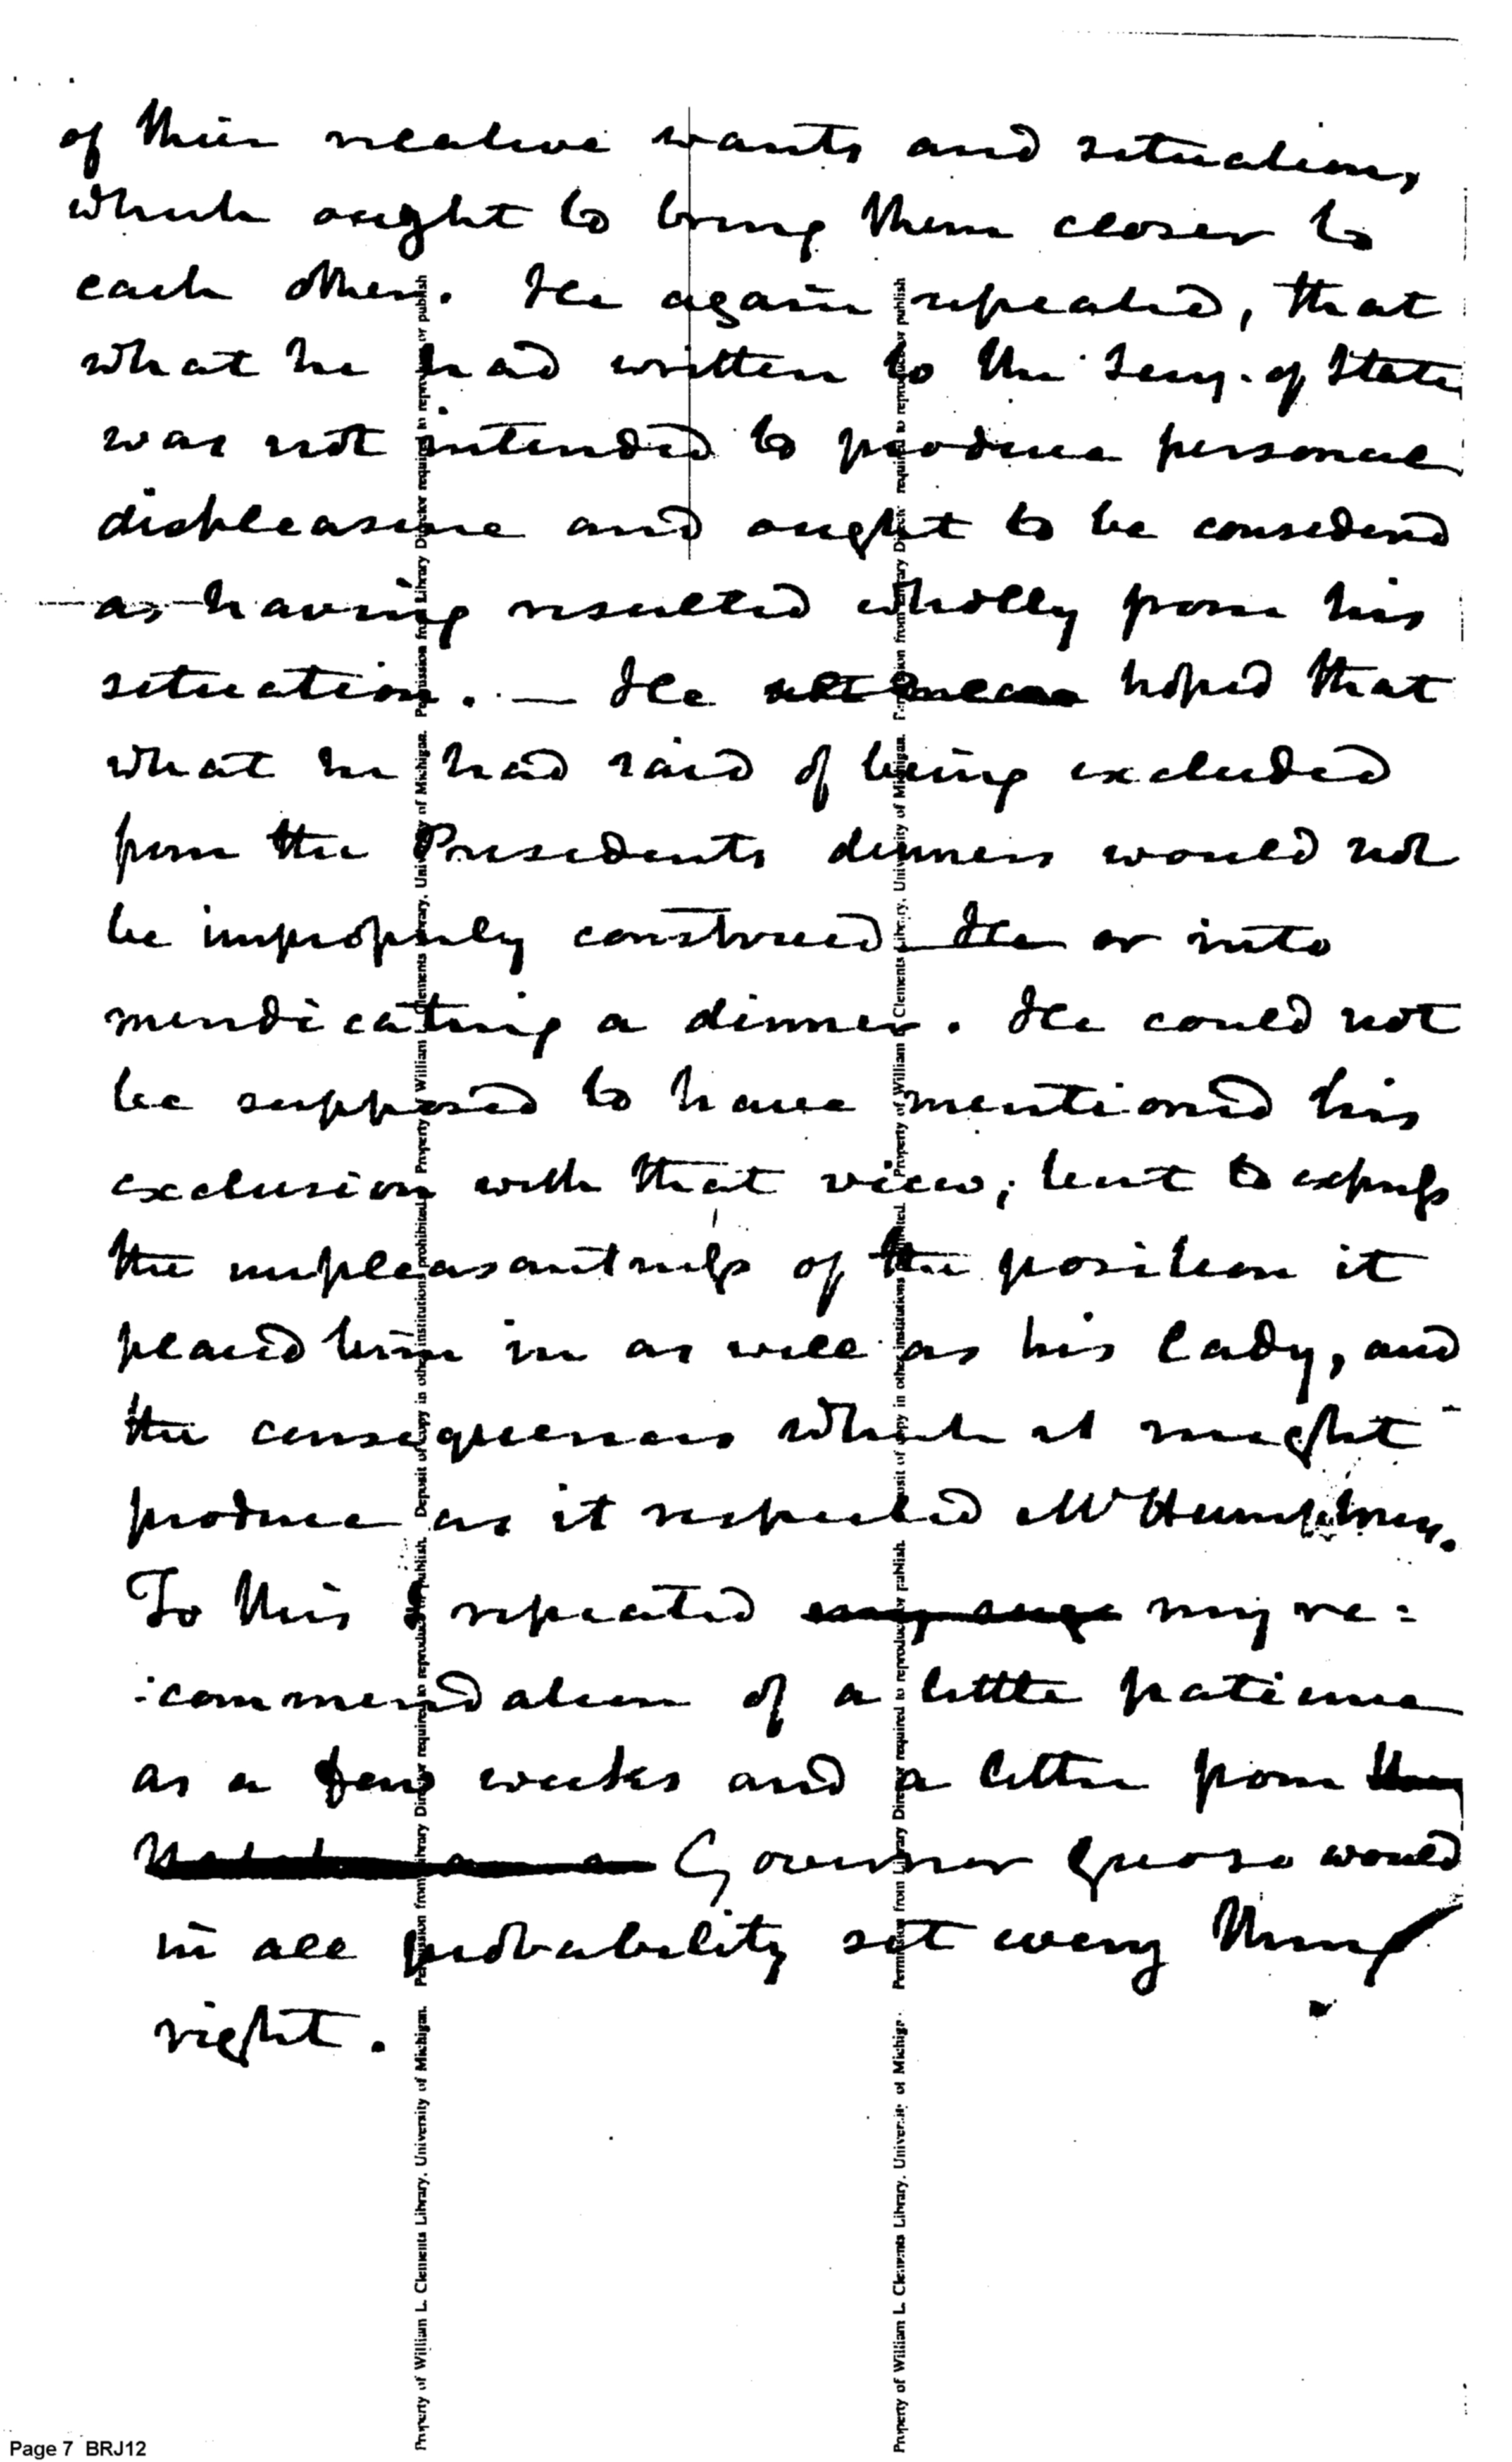 of their relative wants and situation,
which ought to bring them closer to
each other. He again repeated, that
what he had written to the Secy. of State
was not intended to produce personal
displeasure and ought to be considered
as having resulted wholly from his
situation. — He hoped that
what he had said of being excluded
from the Presidents dinners would not
be improperly construed He or into
mendicating a dinner. He could not
be supposed to have mentioned his
exclusion with that view; but to express
the unpleasantness of the position it
placed him in as well as his lady, and
the consequences which it might
produce as it respected Mr Humphrey.
To this I repeated my re=
:commendation of a little patience
as a few weeks and a letter from
Governor would
in all probability set every thing
right.
Property of William L. Clements Library, University of Michigan. Permission from Library Director required to reproduce or publish. Deposit of copy in other institutions prohibited. Property of William L. Clements Library, University of Michigan. Permission from Library Director required to reproduce or publish
Property of William L. Clements Library, University of Michigan. Permission from Library Director required to reproduce or publish. Deposit of copy in other institutions prohibited. Property of William L. Clements Library, University of Michigan. Permission from Library Director required to reproduce or publish
Page 7 BRJ12